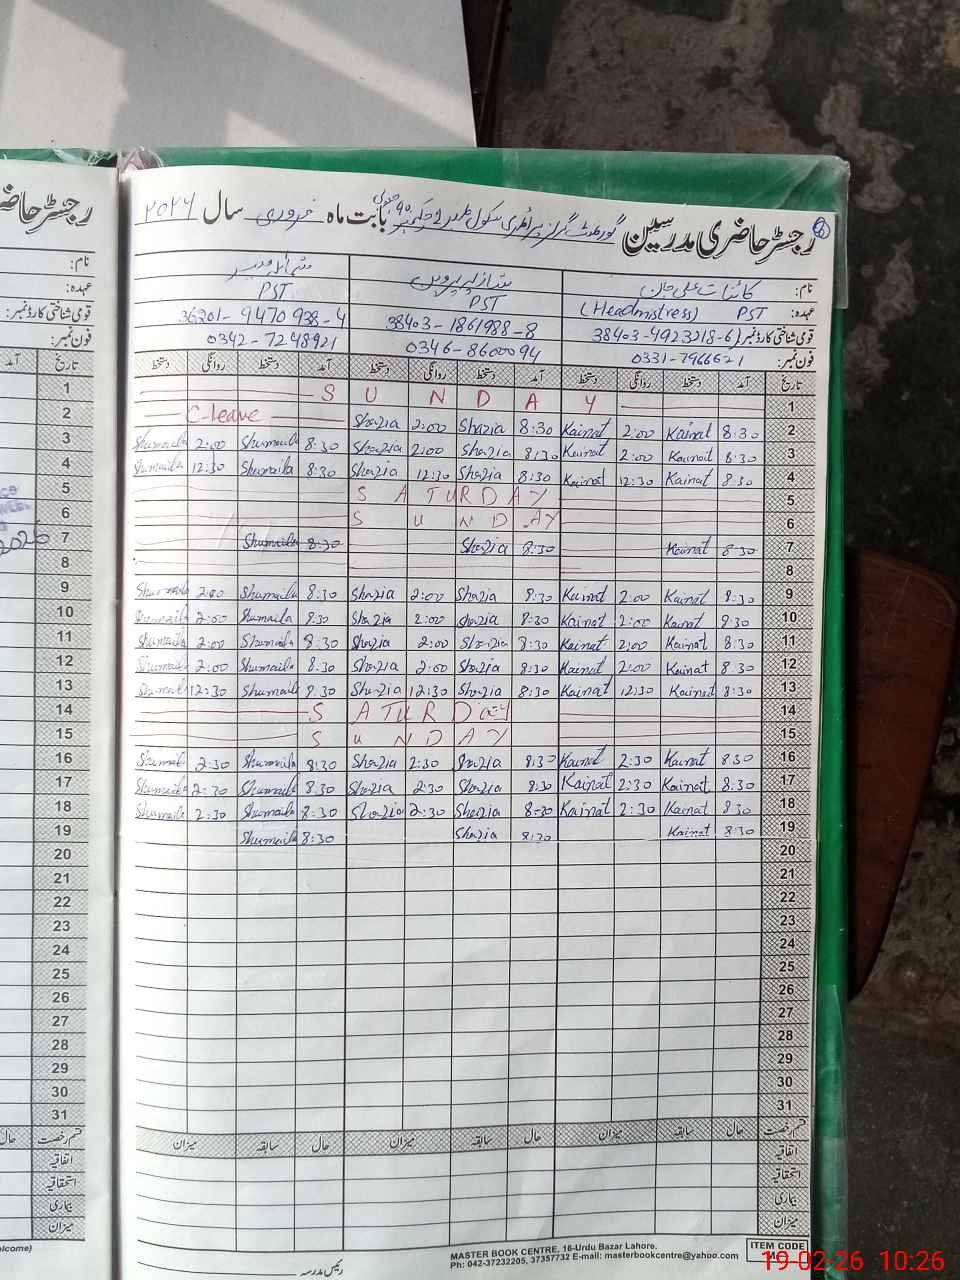 رجسٹر حاضری مدرسین گورنمنٹ گرلز پرائمری سکول بابت ماہ فروری سال ۲۰۲۶
نام: کائنات علی جان شازیہ پروین
عہدہ: PST (Headmistress) PST PST
قومی شناختی کارڈ نمبر: 38403-4923218-6 38403-1861988-8 36201-9470938-4
فون نمبر: 0331-7966621 0346-8600094 0342-7248921
تاریخ آمد دستخط روانگی دستخط آمد دستخط روانگی دستخط آمد دستخط روانگی دستخط
1 SUNDAY 1
2 C-leave Shazia 2:00 Shazia 8:30 Kainat 2:00 Kainat 8:30 2
3 Shumaila 2:00 Shumaila 8:30 Shazia 2:00 Shazia 8:30 Kainat 2:00 Kainat 8:30 3
4 Shumaila 12:30 Shumaila 8:30 Shazia 12:30 Shazia 8:30 Kainat 12:30 Kainat 8:30 4
5 SATURDAY 5
6 SUNDAY 6
7 Shumaila 8:30 Shazia 8:30 Kainat 8:30 7
8 8
9 Shumaila 2:00 Shumaila 8:30 Shazia 2:00 Shazia 8:30 Kainat 2:00 Kainat 8:30 9
10 Shumaila 2:00 Shumaila 8:30 Shazia 2:00 Shazia 8:30 Kainat 2:00 Kainat 8:30 10
11 Shumaila 2:00 Shumaila 8:30 Shazia 2:00 Shazia 8:30 Kainat 2:00 Kainat 8:30 11
12 Shumaila 2:00 Shumaila 8:30 Shazia 2:00 Shazia 8:30 Kainat 2:00 Kainat 8:30 12
13 Shumaila 12:30 Shumaila 8:30 Shazia 12:30 Shazia 8:30 Kainat 12:30 Kainat 8:30 13
14 SATURDAY 14
15 SUNDAY 15
16 Shumaila 2:30 Shumaila 8:30 Shazia 2:30 Shazia 8:30 Kainat 2:30 Kainat 8:30 16
17 Shumaila 2:30 Shumaila 8:30 Shazia 2:30 Shazia 8:30 Kainat 2:30 Kainat 8:30 17
18 Shumaila 2:30 Shumaila 8:30 Shazia 2:30 Shazia 8:30 Kainat 2:30 Kainat 8:30 18
19 Shumaila 8:30 Shazia 8:30 Kainat 8:30 19
20 20
21 21
22 22
23 23
24 24
25 25
26 26
27 27
28 28
29 29
30 30
31 31
قسم رخصت حال سابقہ میزان حال سابقہ میزان حال سابقہ میزان
اتفاقیہ
استحقاقیہ
بیماری
میزان
رئیس مدرسہ
MASTER BOOK CENTRE, 16-Urdu Bazar Lahore.
Ph: 042-37232205, 37357732 E-mail: masterbookcentre@yahoo.com
ITEM CODE
19-02-26 10:26